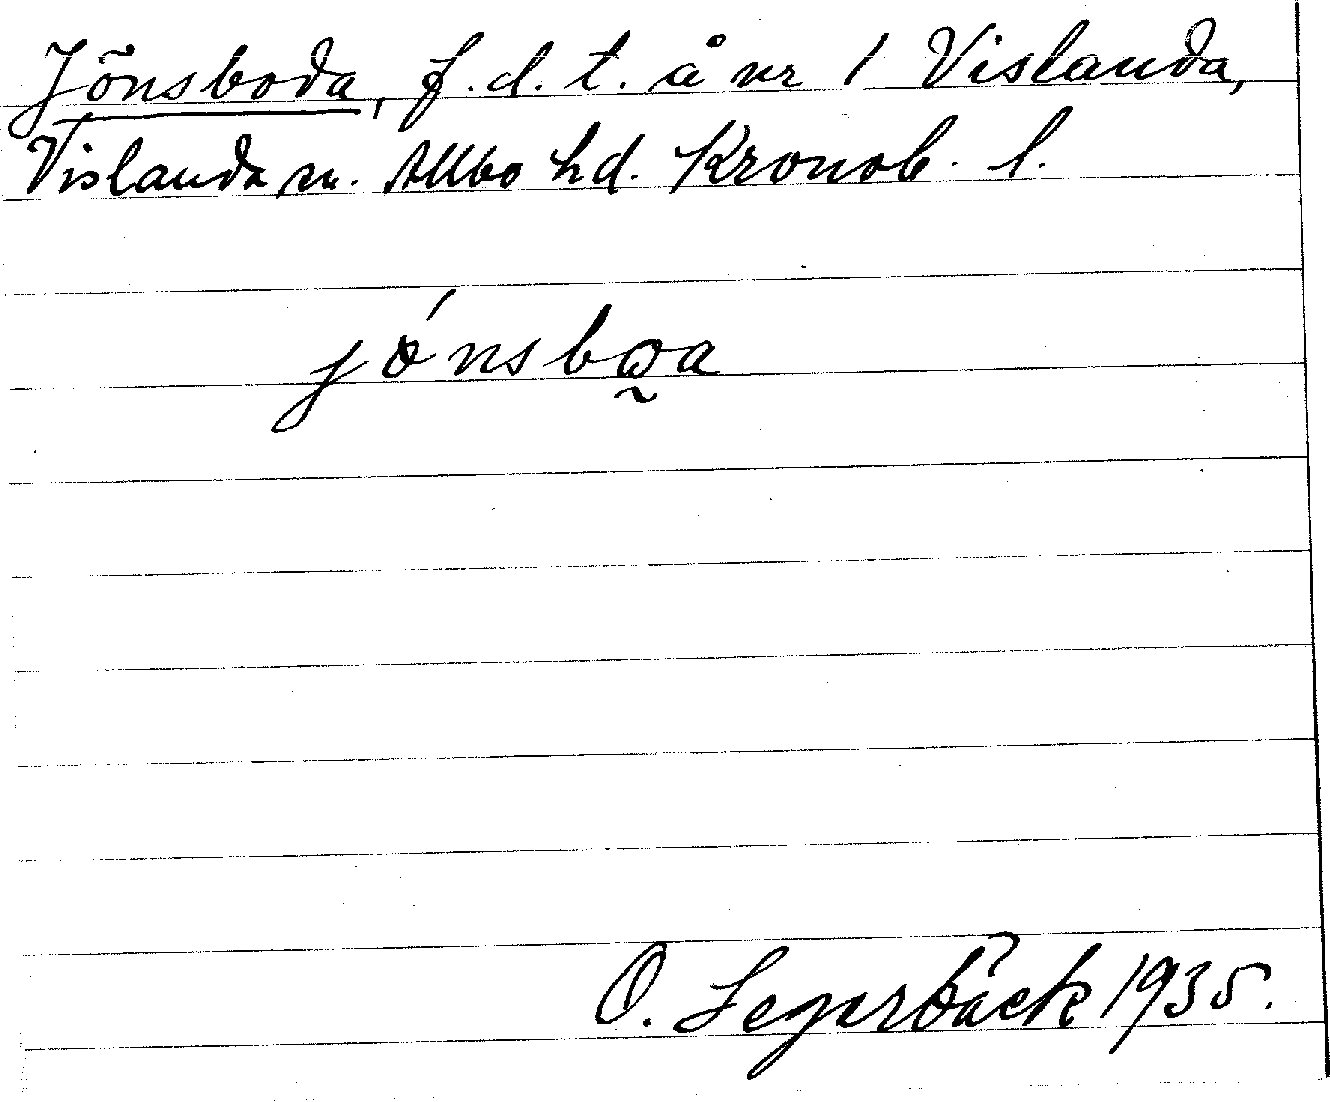 Jönsboda, f.d.t. å nr 1 Vislanda,
Vislanda sn. Allbo hd. Kronob. l.
jónsbo̰a
O. Segerbäck 1935.